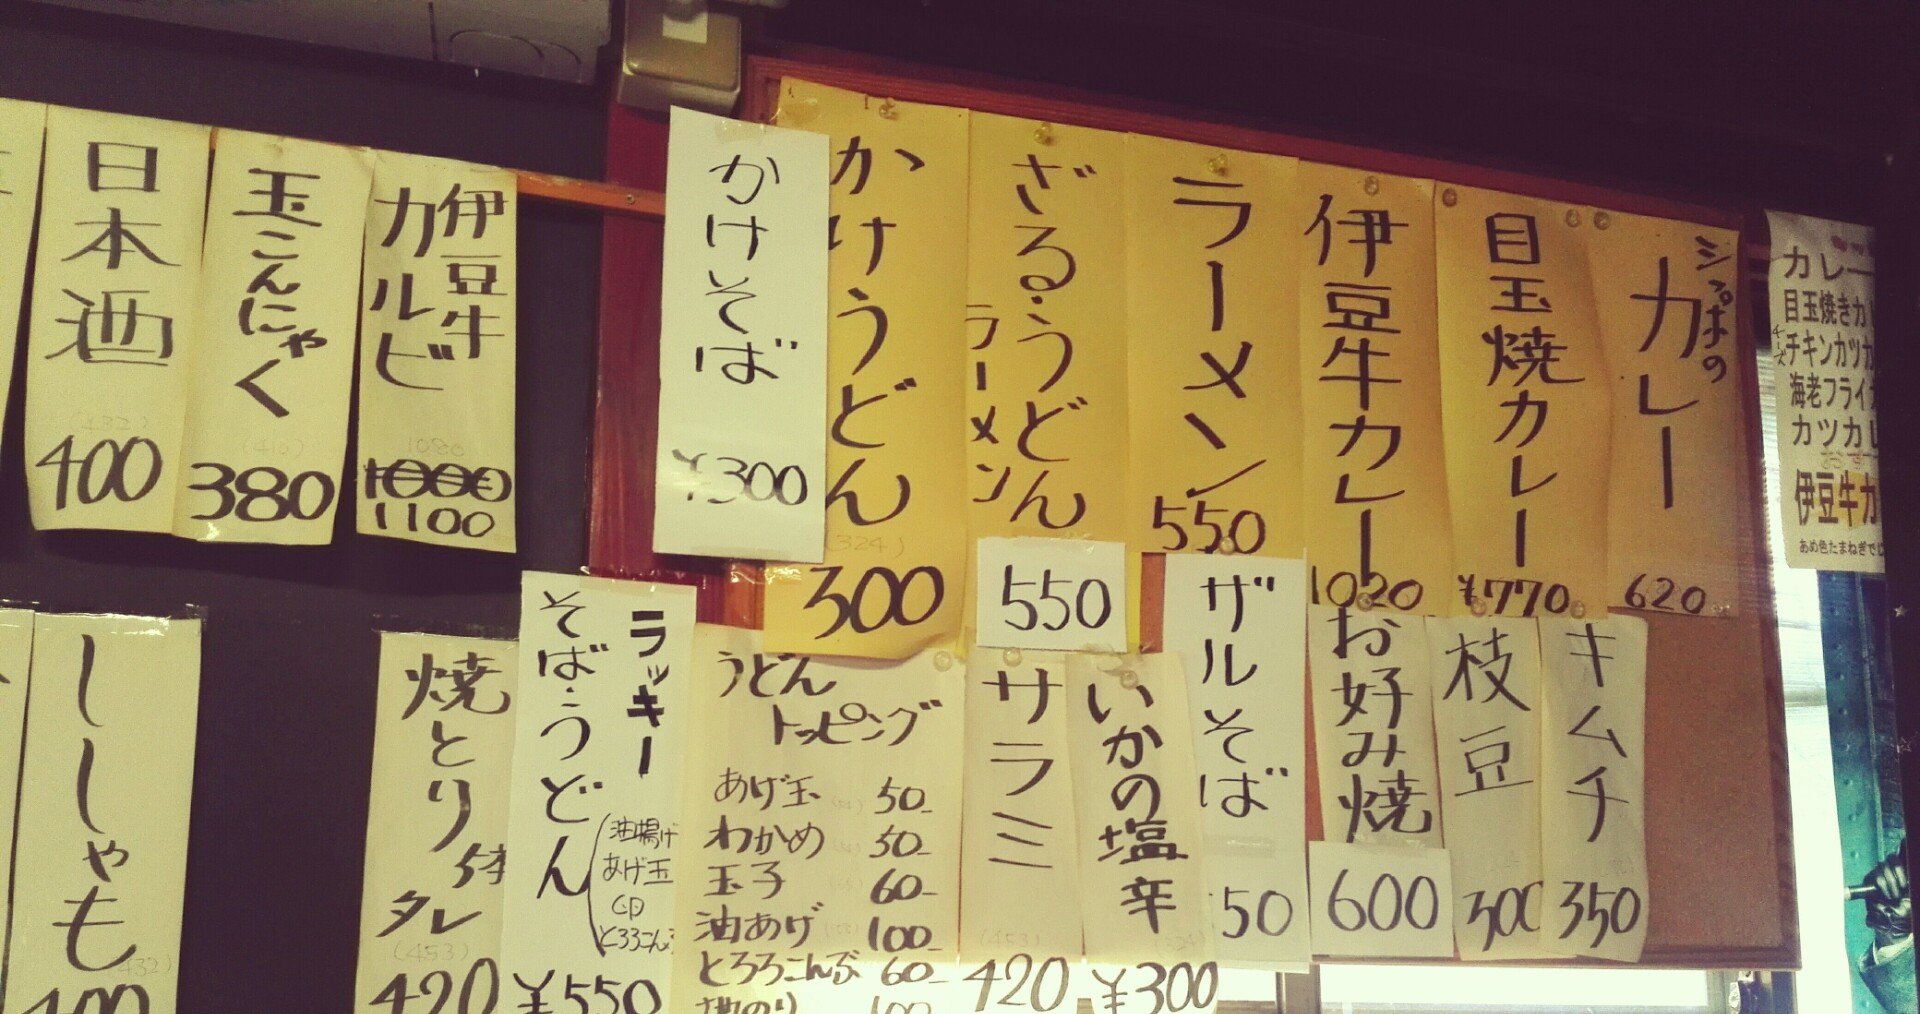 日本酒
(432)
400
玉こんにゃく
380
伊豆牛
カルビ
1080
1000
1100
かけそば
¥300
かけうどん
(324)
300
ざる・うどん
ラーメン
550
ラーメン
550
伊豆牛カレー
1020
目玉焼カレー
¥770
シッぽの
カレー
620
カレー
目玉焼きカ
チーズ
チキンカツカ
海老フライ
カツカレ
伊豆牛カ
あめ色たまねぎでじ
ししゃも
(432)
400
焼とり
5本
タレ
(453)
420
ラッキー
そば・うどん
油揚げ
あげ玉
とろろこんぶ
¥550
うどん
トッピング
あげ玉 50-
わかめ 50-
玉子 60-
油あげ 100-
とろろこんぶ 60-
100
サラミ
(453)
420
いかの塩辛
(324)
¥300
ザルそば
50
お好み焼
600
枝豆
300
キムチ
350